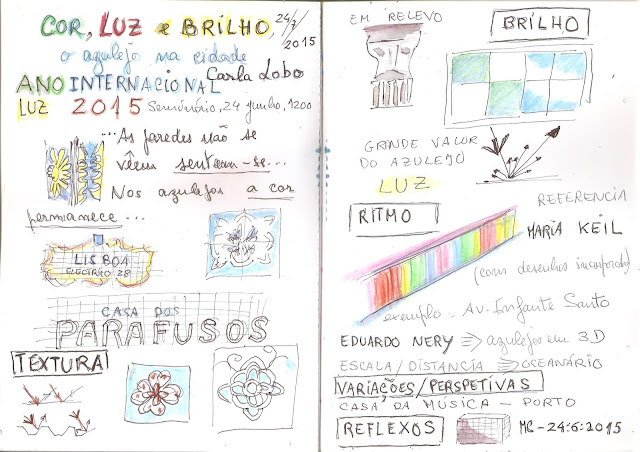 COR, LUZ e BRILHO, 24/7/2015
o azulejo na cidade
Carla Lobo
ANO INTERNACIONAL
LUZ 2015 Seminário, 24 junho, 1200
...As paredes não se
vêem sentem-se...
Nos azulejos a cor
permanece...
LISBOA
ELECTRICO 28
CASA DOS
PARAFUSOS
TEXTURA
EM RELEVO
BRILHO
GRANDE VALOR
DO AZULEJO
LUZ
RITMO
REFERENCIA
MARIA KEIL
(com desenhos incorporados)
exemplo - Av. Infante Santo
EDUARDO NERY ⇒ azulejos em 3D
ESCALA/DISTANCIA ⇒ OCEANÁRIO
VARIAÇÕES/PERSPETIVAS
CASA DA MÚSICA - PORTO
REFLEXOS
MC-24:6:2015